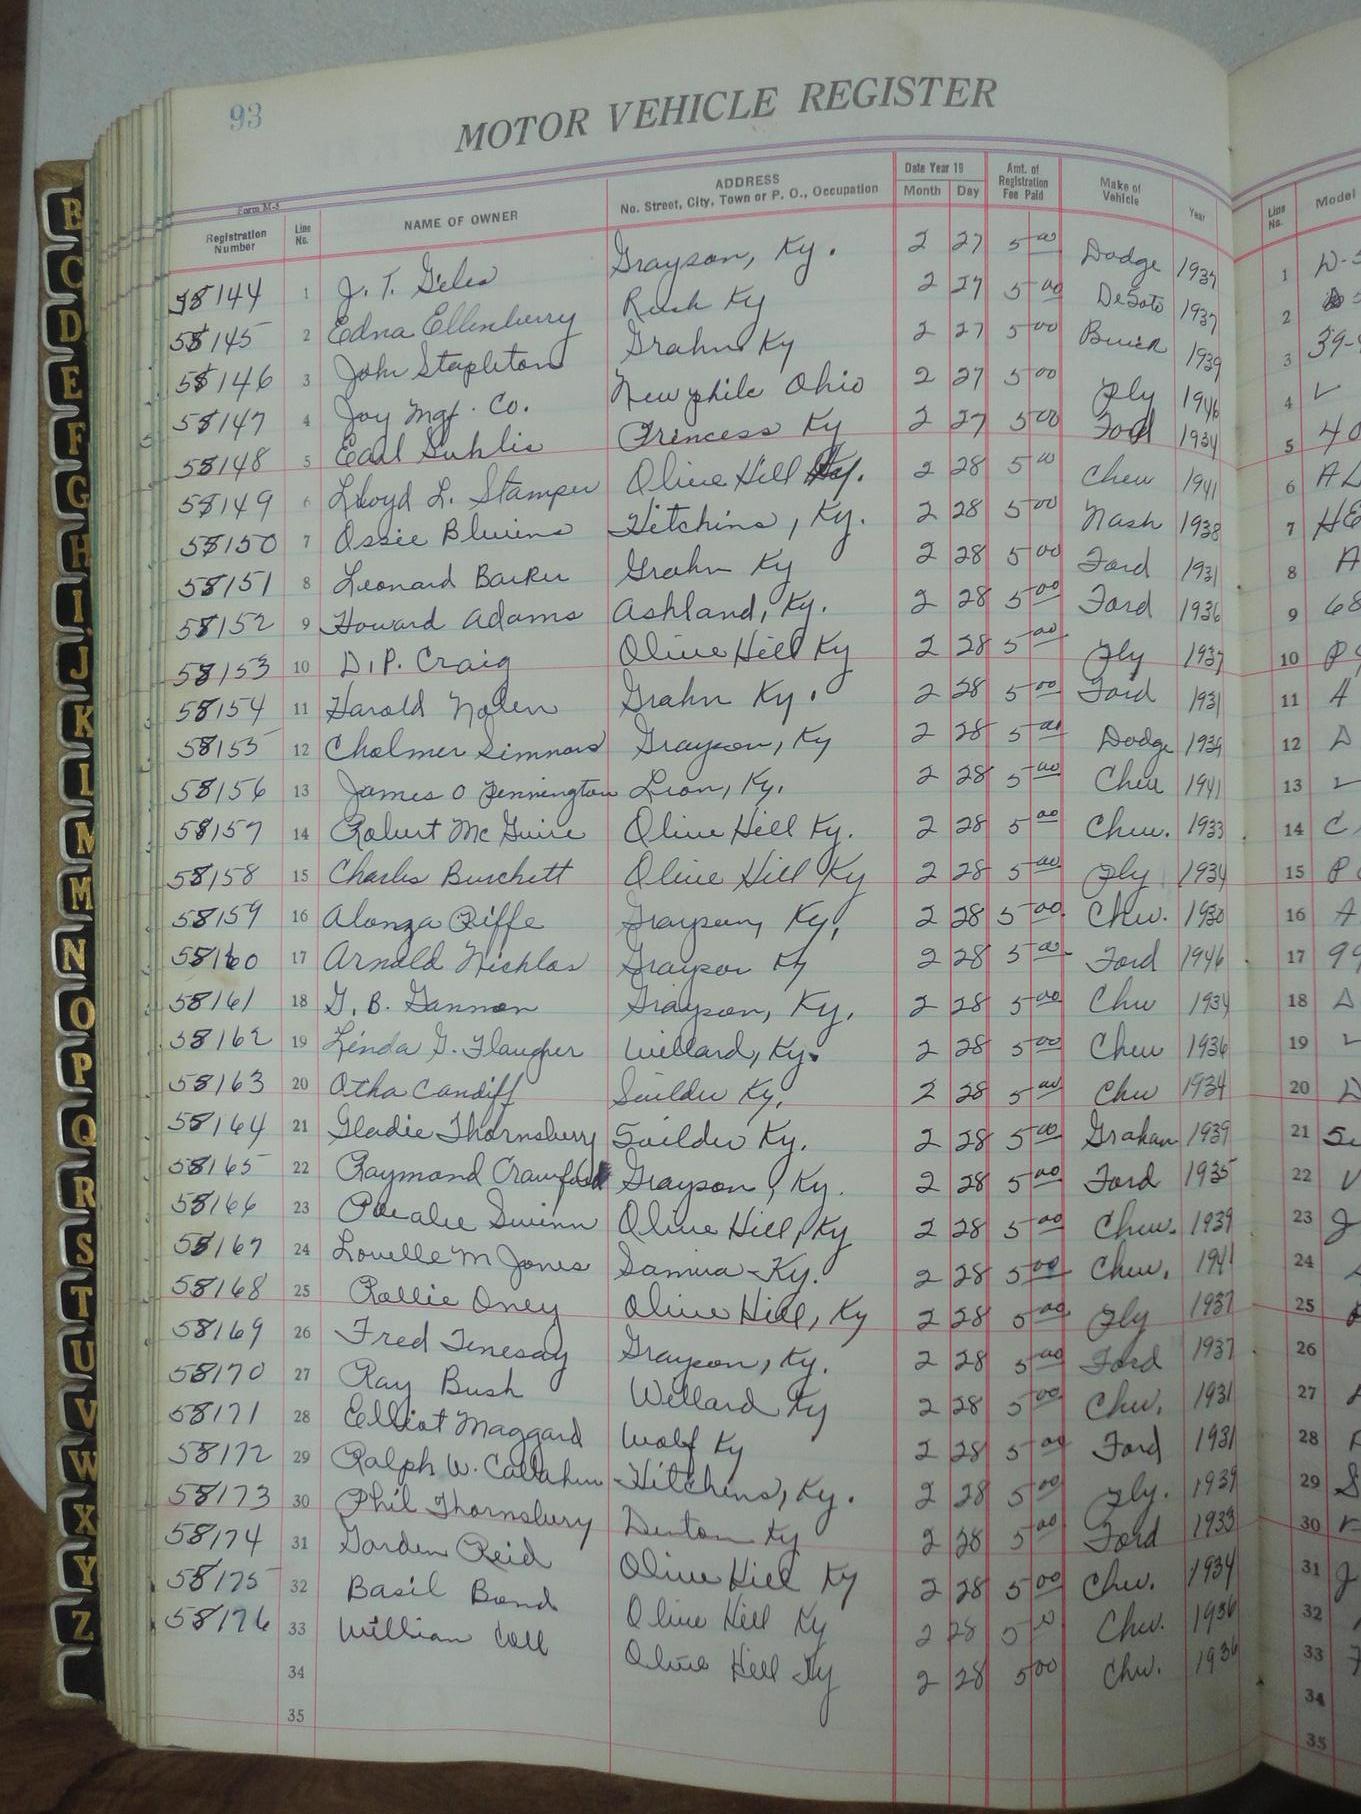 93
MOTOR VEHICLE REGISTER
Form M-5
Registration Number Line No. NAME OF OWNER ADDRESS No. Street, City, Town or P. O., Occupation Date Year 19 Month Day Amt. of Registration Fee Paid Make of Vehicle Year Line No. Model
58144 1 J. T. Giles Grayson, Ky. 2 27 5 00 Dodge 1937 1
58145 2 Edna Ellenberry Rush Ky 2 27 5 00 DeSoto 1937 2
58146 3 John Stapleton Grahn Ky 2 27 5 00 Buick 1939 3 39-
58147 4 Joy Mgf. Co. Newphile Ohio 2 27 5 00 Ply 1946 4
58148 5 Earl Princess Ky 2 27 5 00 Ford 1934 5 40
58149 6 Lloyd L. Stamper Olive Hill Ky. 2 28 5 00 Chev 1941 6
58150 7 Ossie Blevins Hitchins, Ky. 2 28 5 00 Nash 1938 7
58151 8 Leonard Barker Grahn Ky 2 28 5 00 Ford 1931 8 A
58152 9 Howard Adams Ashland, Ky. 2 28 5 00 Ford 1936 9 68
58153 10 D.P. Craig Olive Hill Ky 2 28 5 00 Ply 1937 10
58154 11 Harold Nolen Grahn Ky. 2 28 5 00 Ford 1931 11 A
58155 12 Cholmer Simmons Grayson, Ky 2 28 5 00 Dodge 12 D
58156 13 James O Pennington Leon, Ky. 2 28 5 00 Chev 1941 13
58157 14 Robert McGuire Olive Hill Ky. 2 28 5 00 Chev. 1933 14 C
58158 15 Charles Burchett Olive Hill Ky 2 28 5 00 Ply 1934 15
58159 16 Alonza Riffe Grayson, Ky. 2 28 5 00 Chev. 1930 16 A
58160 17 Arnold Nichlas Grayson Ky 2 28 5 00 Ford 1946 17 99
58161 18 G. B. Gannon Grayson, Ky. 2 28 5 00 Chev 1934 18 D
58162 19 Linda G. Flaugher Willard, Ky. 2 28 5 00 Chev 1936 19
58163 20 Otha Cundiff Soilder Ky. 2 28 5 00 Chev 1934 20 D
58164 21 Gladie Thornsberry Soilder Ky. 2 28 5 00 Graham 1939 21
58165 22 Raymond Crawford Grayson, Ky. 2 28 5 00 Ford 1935 22 V
58166 23 Gwinn Olive Hill, Ky 2 28 5 00 Chev. 1939 23 J
58167 24 Lovelle M Jones Ky. 2 28 5 00 Chev. 1941 24
58168 25 Rollie Oney Olive Hill, Ky 2 28 5 00 Ply 1937 25
58169 26 Fred Tenesay Grayson, Ky. 2 28 5 00 Ford 1937 26
58170 27 Ray Bush Willard Ky 2 28 5 00 Chev. 1931 27
58171 28 Elliot Maggard Wolf Ky 2 28 5 00 Ford 1931 28
58172 29 Ralph W. Callahan Hitchins, Ky. 2 28 5 00 Ply. 1939 29 S
58173 30 Phil Thornsbury Denton Ky 2 28 5 00 Ford 1933 30
58174 31 Garden Reid Olive Hill Ky 2 28 5 00 Chev. 1934 31 J
58175 32 Basil Bond Olive Hill Ky 2 28 5 00 Chev. 1936 32
58176 33 William Olive Hill Ky 2 28 5 00 Chev. 1936 33
34 34
35 35
B
C
D
E
F
G
H
I
J
K
L
M
M
N
O
P
Q
R
S
T
U
V
W
X
Y
Z